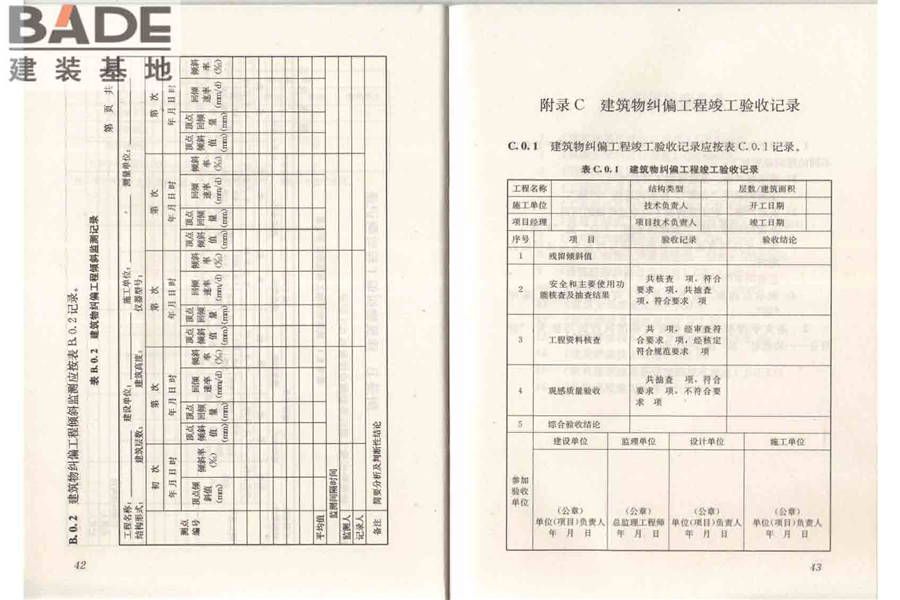 BADE
建装基地
B.0.2 建筑物纠偏工程倾斜监测应按表B.0.2记录。
表 B.0.2 建筑物纠偏工程倾斜监测记录
第 页 共
工程名称: 建设单位: 施工单位: 测量单位:
结构形式: 建筑层数: 建筑高度: 仪器型号:
测点编号 初 次 第 次 第 次 第 次 第 次
年 月 日 时 年 月 日 时 年 月 日 时 年 月 日 时 年 月 日 时
顶点倾斜值(mm) 倾斜率(‰) 顶点倾斜值(mm) 顶点回倾量(mm) 回倾速率(mm/d) 倾斜率(‰) 顶点倾斜值(mm) 顶点回倾量(mm) 回倾速率(mm/d) 倾斜率(‰) 顶点倾斜值(mm) 顶点回倾量(mm) 回倾速率(mm/d) 倾斜率(‰) 顶点倾斜值(mm) 顶点回倾量(mm) 回倾速率(mm/d) 倾斜率(‰)
平均值
监测间隔时间
监测人
记录人
备注 简要分析及判断性结论
42
附录 C 建筑物纠偏工程竣工验收记录
C.0.1 建筑物纠偏工程竣工验收记录应按表 C.0.1 记录。
表 C.0.1 建筑物纠偏工程竣工验收记录
工程名称 结构类型 层数/建筑面积
施工单位 技术负责人 开工日期
项目经理 项目技术负责人 竣工日期
序号 项 目 验收记录 验收结论
1 残留倾斜值
2 安全和主要使用功能核查及抽查结果 共核查 项,符合
要求 项,共抽查
项,符合要求 项
3 工程资料核查 共 项,经审查符
合要求 项,经核定
符合规范要求 项
4 观感质量验收 共抽查 项,符合
要求 项,不符合要
求 项
5 综合验收结论
参加验收单位 建设单位 监理单位 设计单位 施工单位
(公章) (公章) (公章) (公章)
单位(项目)负责人 总监理工程师 单位(项目)负责人 单位(项目)负责人
年 月 日 年 月 日 年 月 日 年 月 日
43